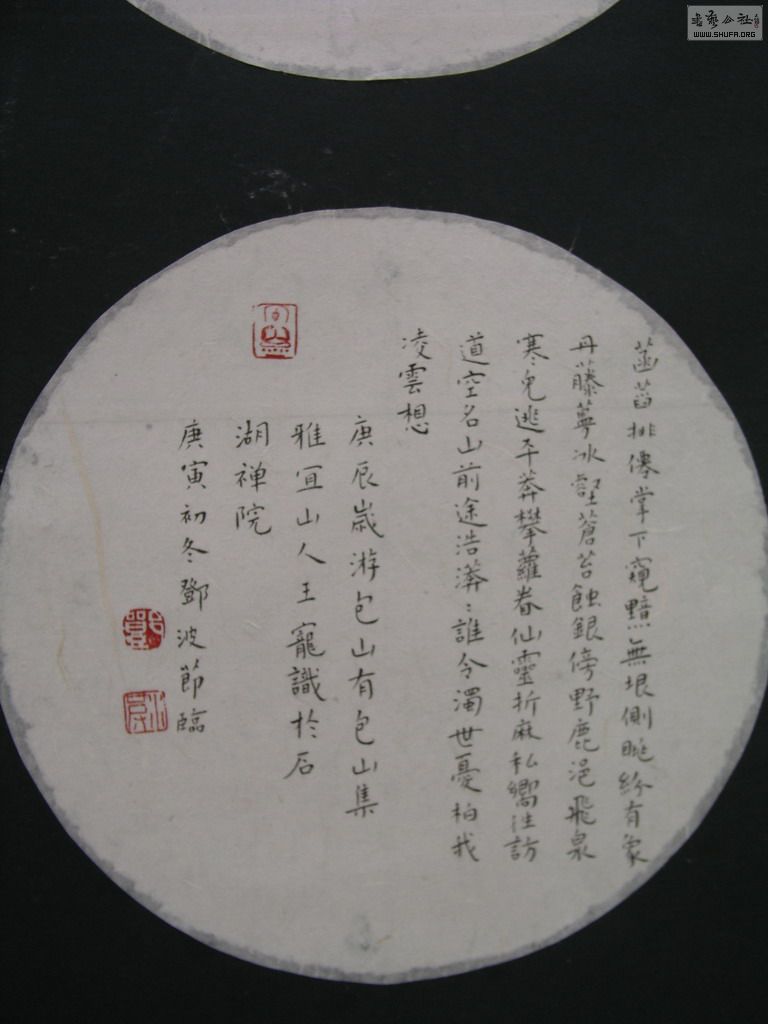 菡萏排僊掌下窺黯無垠側眺紛有象
丹藤萼冰壑蒼苔蝕銀傍野鹿浥飛泉
寒兔逃平莽攀蘿眷仙靈折麻私嚮往訪
道空名山前途浩漭:誰令濁世憂柏我
凌雲想
庚辰歲游包山有包山集
雅宜山人王寵識於石
湖禅院
庚寅初冬鄧波節臨
书艺公社
WWW.SHUFA.ORG